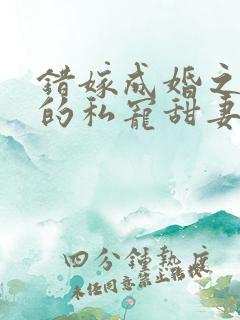 错嫁成婚之
的私宠甜妻
四分钟热度
未经同意禁止转载